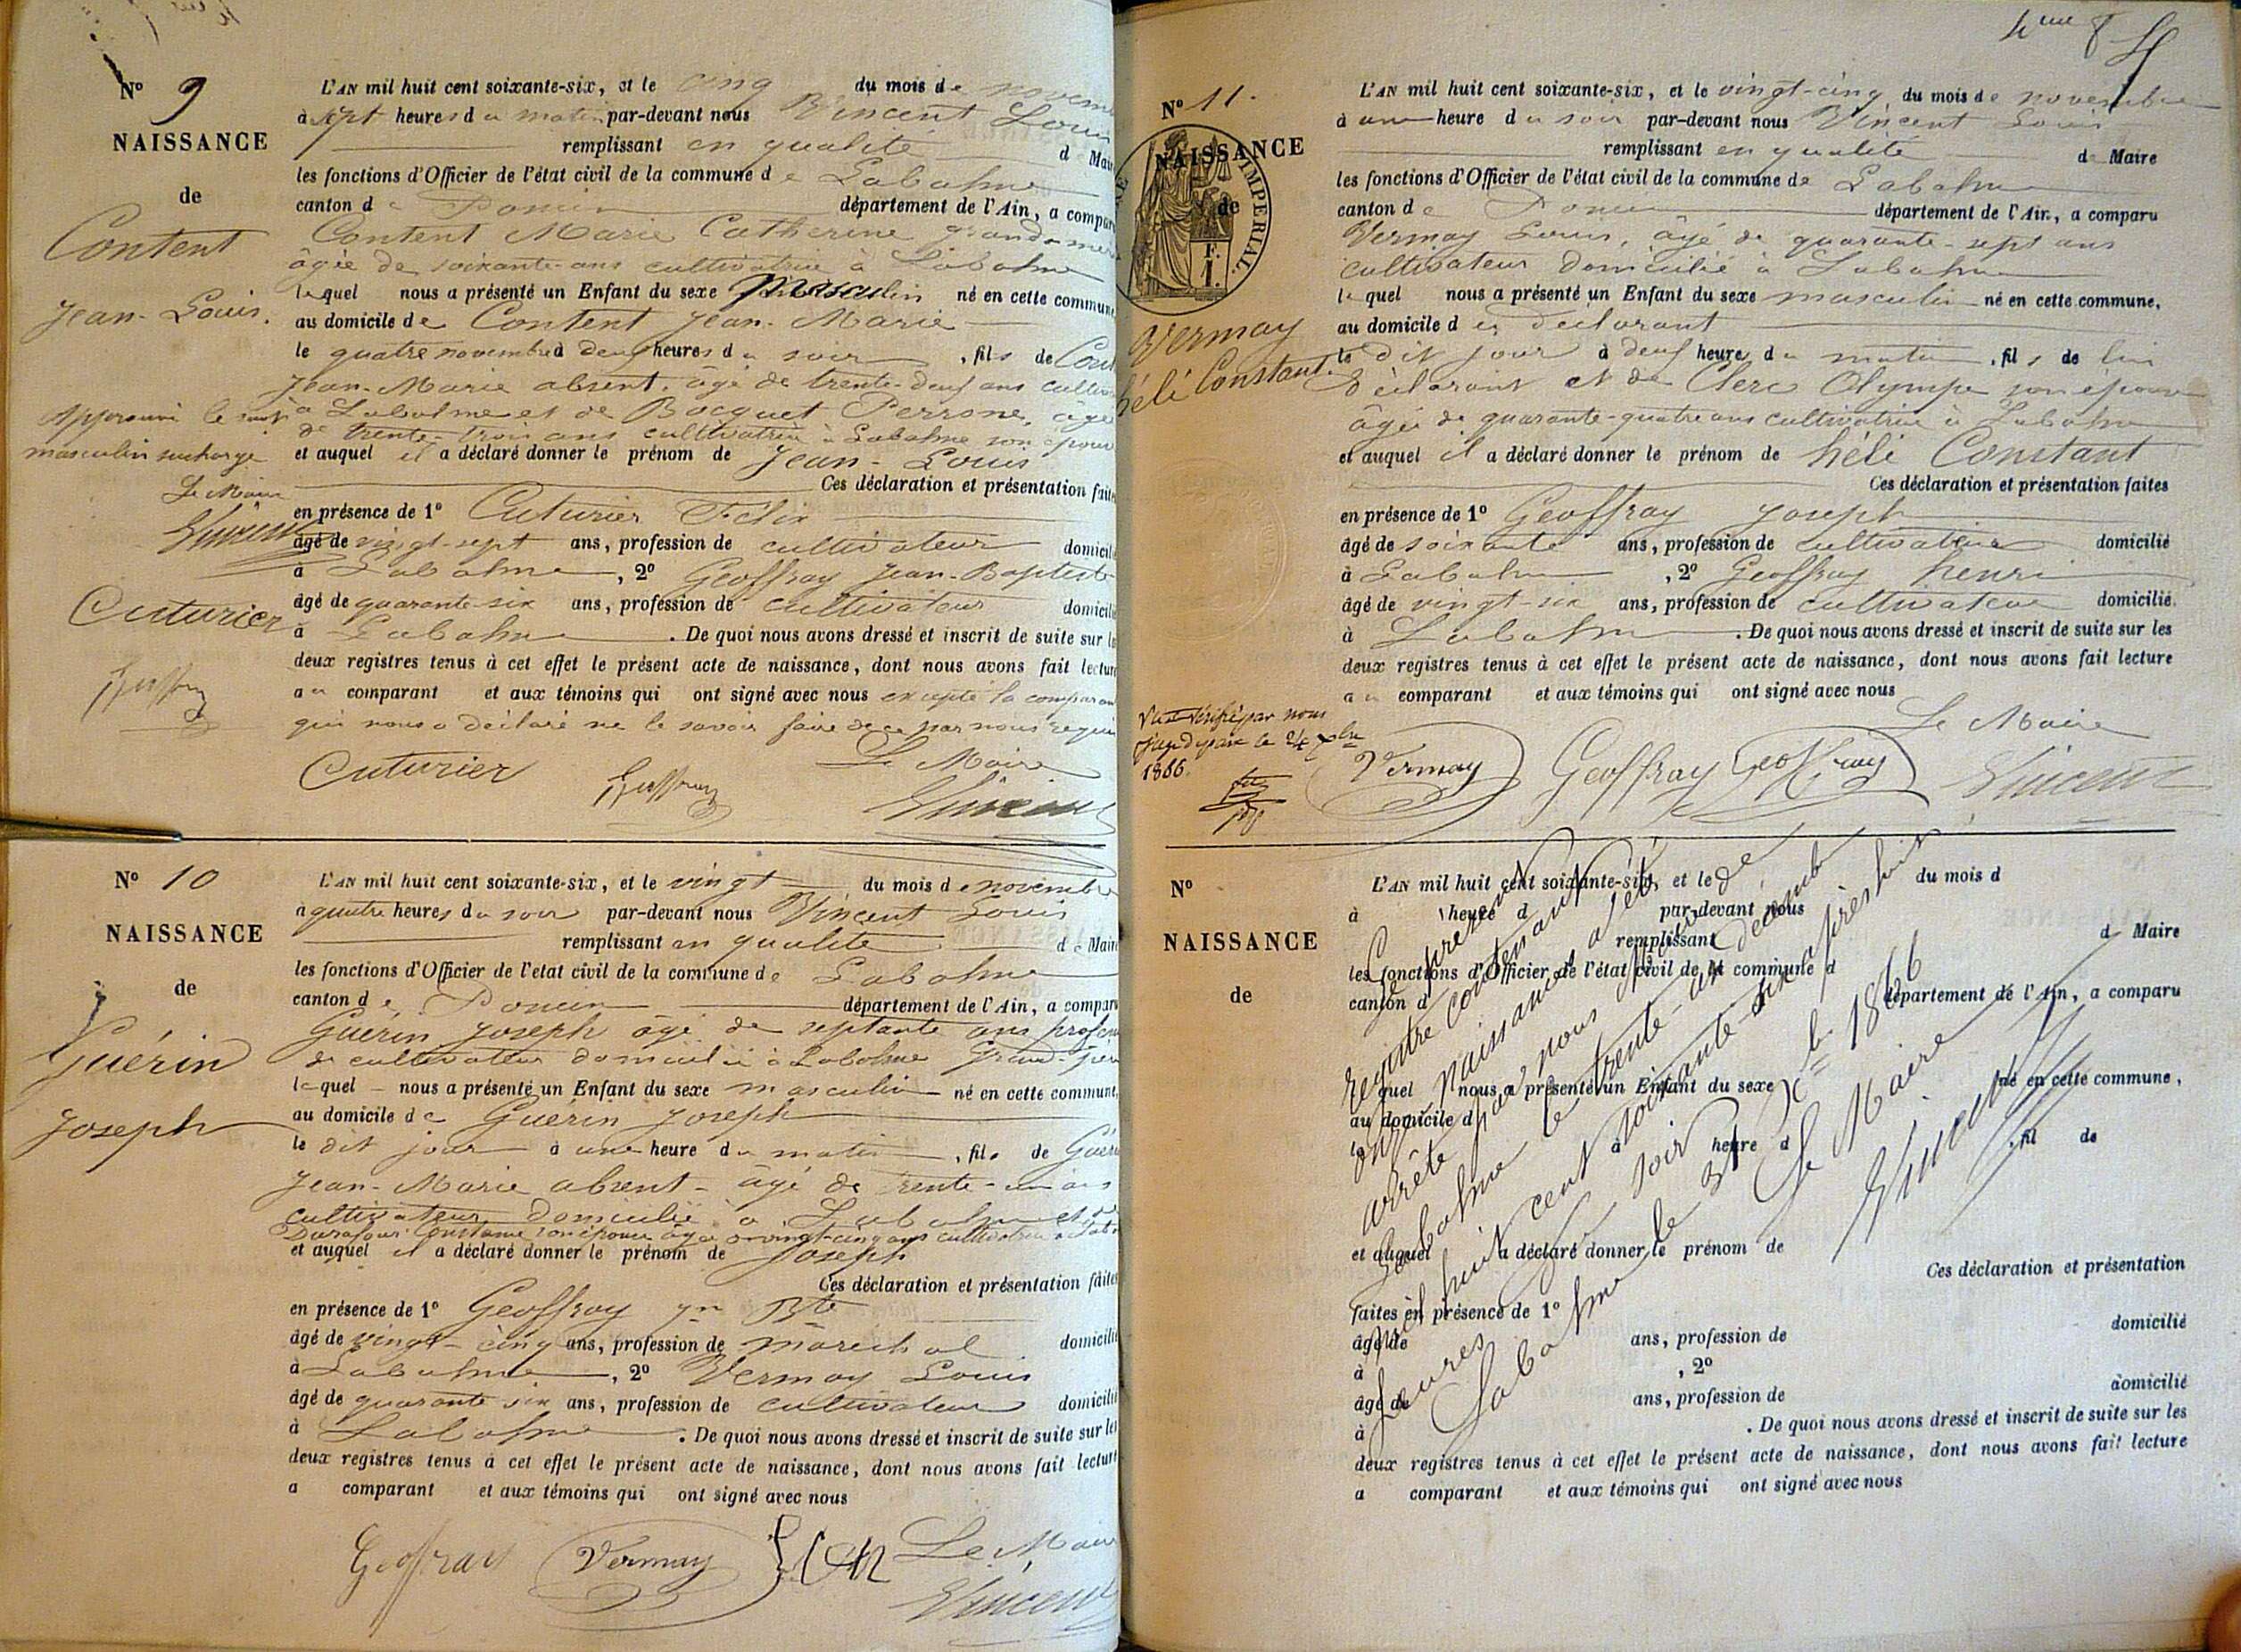 N° 9
NAISSANCE
de
Content
Jean-Louis.
Approuvé le mot
masculin surchargé
Le Maire
Vincent
Cuturier
Geoffray
L'AN mil huit cent soixante-six, et le cinq du mois de novem
à sept heures du matin par-devant nous Vincent Louis
remplissant en qualité de Mair
les fonctions d'Officier de l'état civil de la commune de Labalme
canton de Poncin département de l'Ain, a compar
Content Marie Catherine grand-mer
âgée de soixante-ans cultivatrice à Labalme
lequel nous a présenté un Enfant du sexe masculin né en cette commun
au domicile de Content Jean-Marie
le quatre novembre à deux heures du soir, fils de Cont
Jean-Marie absent, âgé de trente-deux ans cultiv
à Labalme et de Bocquet Perrone, âgée
de trente-trois ans cultivatrice à Labalme son épous
et auquel il a déclaré donner le prénom de Jean-Louis
Ces déclaration et présentation faite
en présence de 1° Cuturier Félix
âgé de vingt-sept ans, profession de cultivateur domicil
à Labalme, 2° Geoffray Jean-Baptiste
âgé de quarante-six ans, profession de cultivateur domicil
à Labalme. De quoi nous avons dressé et inscrit de suite sur le
deux registres tenus à cet effet le présent acte de naissance, dont nous avons fait lectur
au comparant et aux témoins qui ont signé avec nous excepté la comparan
qui nous a déclaré ne le savoir faire de ce par nous requi
Le Maire
Cuturier Geoffray Vincent
N° 10
NAISSANCE
de
Guérin
Joseph
L'AN mil huit cent soixante-six, et le vingt du mois de novembre
à quatre heures du soir par-devant nous Vincent Louis
remplissant en qualité de Maire
les fonctions d'Officier de l'état civil de la commune de Labalme
canton de Poncin département de l'Ain, a compar
Guérin Joseph âgé de septante ans profes
de cultivateur domicilié à Labalme Grand-pèr
lequel nous a présenté un Enfant du sexe masculin né en cette commune,
au domicile de Guérin Joseph
le dit jour à une heure du matin, fils de Guéri
Jean-Marie absent- âgé de trente-un ans
cultivateur domicilié à Labalme et de
Durafour Constance son épouse âgée de vingt-cinq ans cultivatrice à Laba
et auquel il a déclaré donner le prénom de Joseph
Ces déclaration et présentation faites
en présence de 1° Geoffray Jn Bte
âgé de vingt-cinq ans, profession de maréchal domicilié
à Labalme, 2° Vermay Louis
âgé de quarante six ans, profession de cultivateur domicilié
à Labalme. De quoi nous avons dressé et inscrit de suite sur les
deux registres tenus à cet effet le présent acte de naissance, dont nous avons fait lecture
a comparant et aux témoins qui ont signé avec nous
Geoffray Vermay Le Maire
Vincent
4me
N° 11.
NAISSANCE
de
IMPERIAL.
F.
1.
Vermay
héli Constant.
Vu et vérifié par nous
juge de paix le 24 xbre
1866.
L'AN mil huit cent soixante-six, et le vingt-cinq du mois de novembre
à une heure du soir par-devant nous Vincent Louis
remplissant en qualité de Maire
les fonctions d'Officier de l'état civil de la commune de Labalme
canton de Poncin département de l'Ain, a comparu
Vermay Louis, âgé de quarante-sept ans
cultivateur domicilié à Labalme
lequel nous a présenté un Enfant du sexe masculin né en cette commune,
au domicile du déclarant
le dit jour à deux heures du matin, fils de lui
déclarant et de Clerc Olympe son épouse
âgée de quarante-quatre ans cultivatrice à Labalme
et auquel il a déclaré donner le prénom de héli Constant
Ces déclaration et présentation faites
en présence de 1° Geoffray Joseph
âgé de soixante ans, profession de cultivateur domicilié
à Labalme, 2° Geoffray henri
âgé de vingt-six ans, profession de cultivateur domicilié
à Labalme. De quoi nous avons dressé et inscrit de suite sur les
deux registres tenus à cet effet le présent acte de naissance, dont nous avons fait lecture
au comparant et aux témoins qui ont signé avec nous
Le Maire
Vermay Geoffray Geoffray Vincent
N°
NAISSANCE
de
L'AN mil huit cent soixante-six, et le du mois d
à heure d par-devant nous
remplissant d Maire
les fonctions d'Officier de l'état civil de la commune d
canton d département de l'Ain, a comparu
quel nous a présenté un Enfant du sexe né en cette commune,
au domicile d
à heure d , fil de
et auquel a déclaré donner le prénom de
Ces déclaration et présentation
faites en présence de 1°
âgé de ans, profession de domicilié
à , 2°
âgé de ans, profession de domicilié
à . De quoi nous avons dressé et inscrit de suite sur les
deux registres tenus à cet effet le présent acte de naissance, dont nous avons fait lecture
a comparant et aux témoins qui ont signé avec nous
Le présent
registre contenant
onze naissances a été
arrêté par nous Maire de
Labalme le trente-un décembre
mil huit cent soixante-six après huit
heures du soir
Labalme le 31 Xbre 1866
Le Maire
Vincent